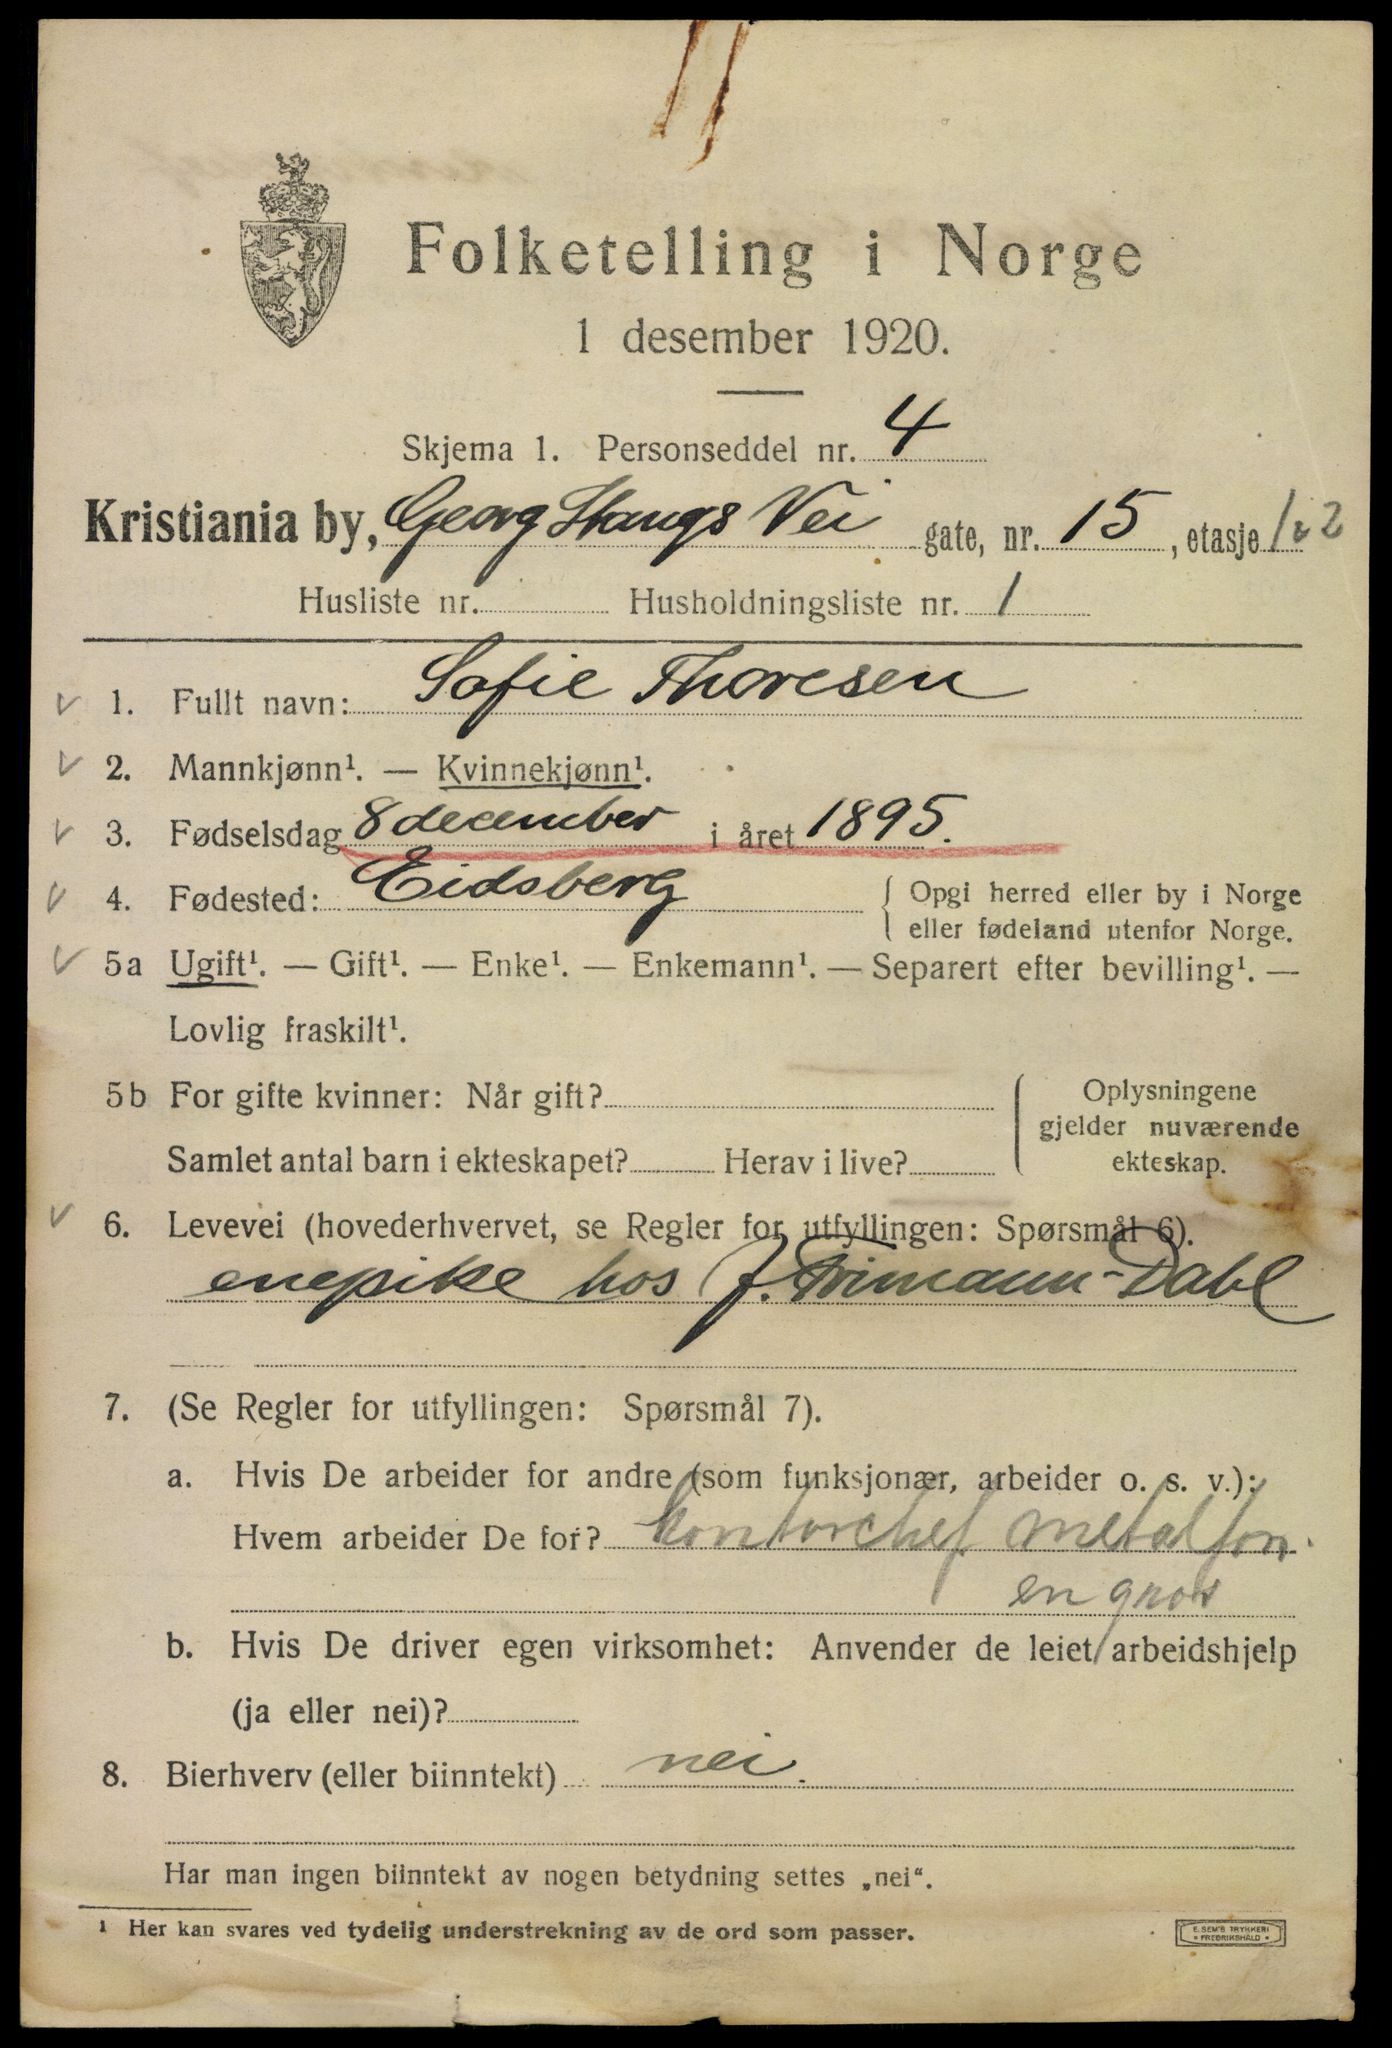 Folketelling i Norge
1 desember 1920.
Skjema 1. Personseddel nr. 4
Kristiania by, Georg Stangs Vei gate, nr. 15, etasje 1 2
Husliste nr. Husholdningsliste nr. 1
1. Fullt navn: Sofie Thoresen
2. Mannkjønn¹. — Kvinnekjønn¹.
3. Fødselsdag 8 december i året 1895.
4. Fødested: Eidsberg { Opgi herred eller by i Norge
eller fødeland utenfor Norge.
5a Ugift¹. — Gift¹. — Enke¹. — Enkemann¹. — Separert efter bevilling¹. —
Lovlig fraskilt¹.
5b For gifte kvinner: Når gift? { Oplysningene
gjelder nuværende
Samlet antal barn i ekteskapet? Herav i live? ekteskap.
6. Levevei (hovederhvervet, se Regler for utfyllingen: Spørsmål 6).
enepike hos J. Frimann-Dahl
7. (Se Regler for utfyllingen: Spørsmål 7).
a. Hvis De arbeider for andre (som funksjonær, arbeider o. s. v.):
Hvem arbeider De for? kontorchef metalforr.
en gros
b. Hvis De driver egen virksomhet: Anvender de leiet arbeidshjelp
(ja eller nei)?
8. Bierhverv (eller biinntekt) nei.
Har man ingen biinntekt av nogen betydning settes „nei“.
¹ Her kan svares ved tydelig understrekning av de ord som passer.
E. SEM'S TRYKKERI
FREDRIKSHALD